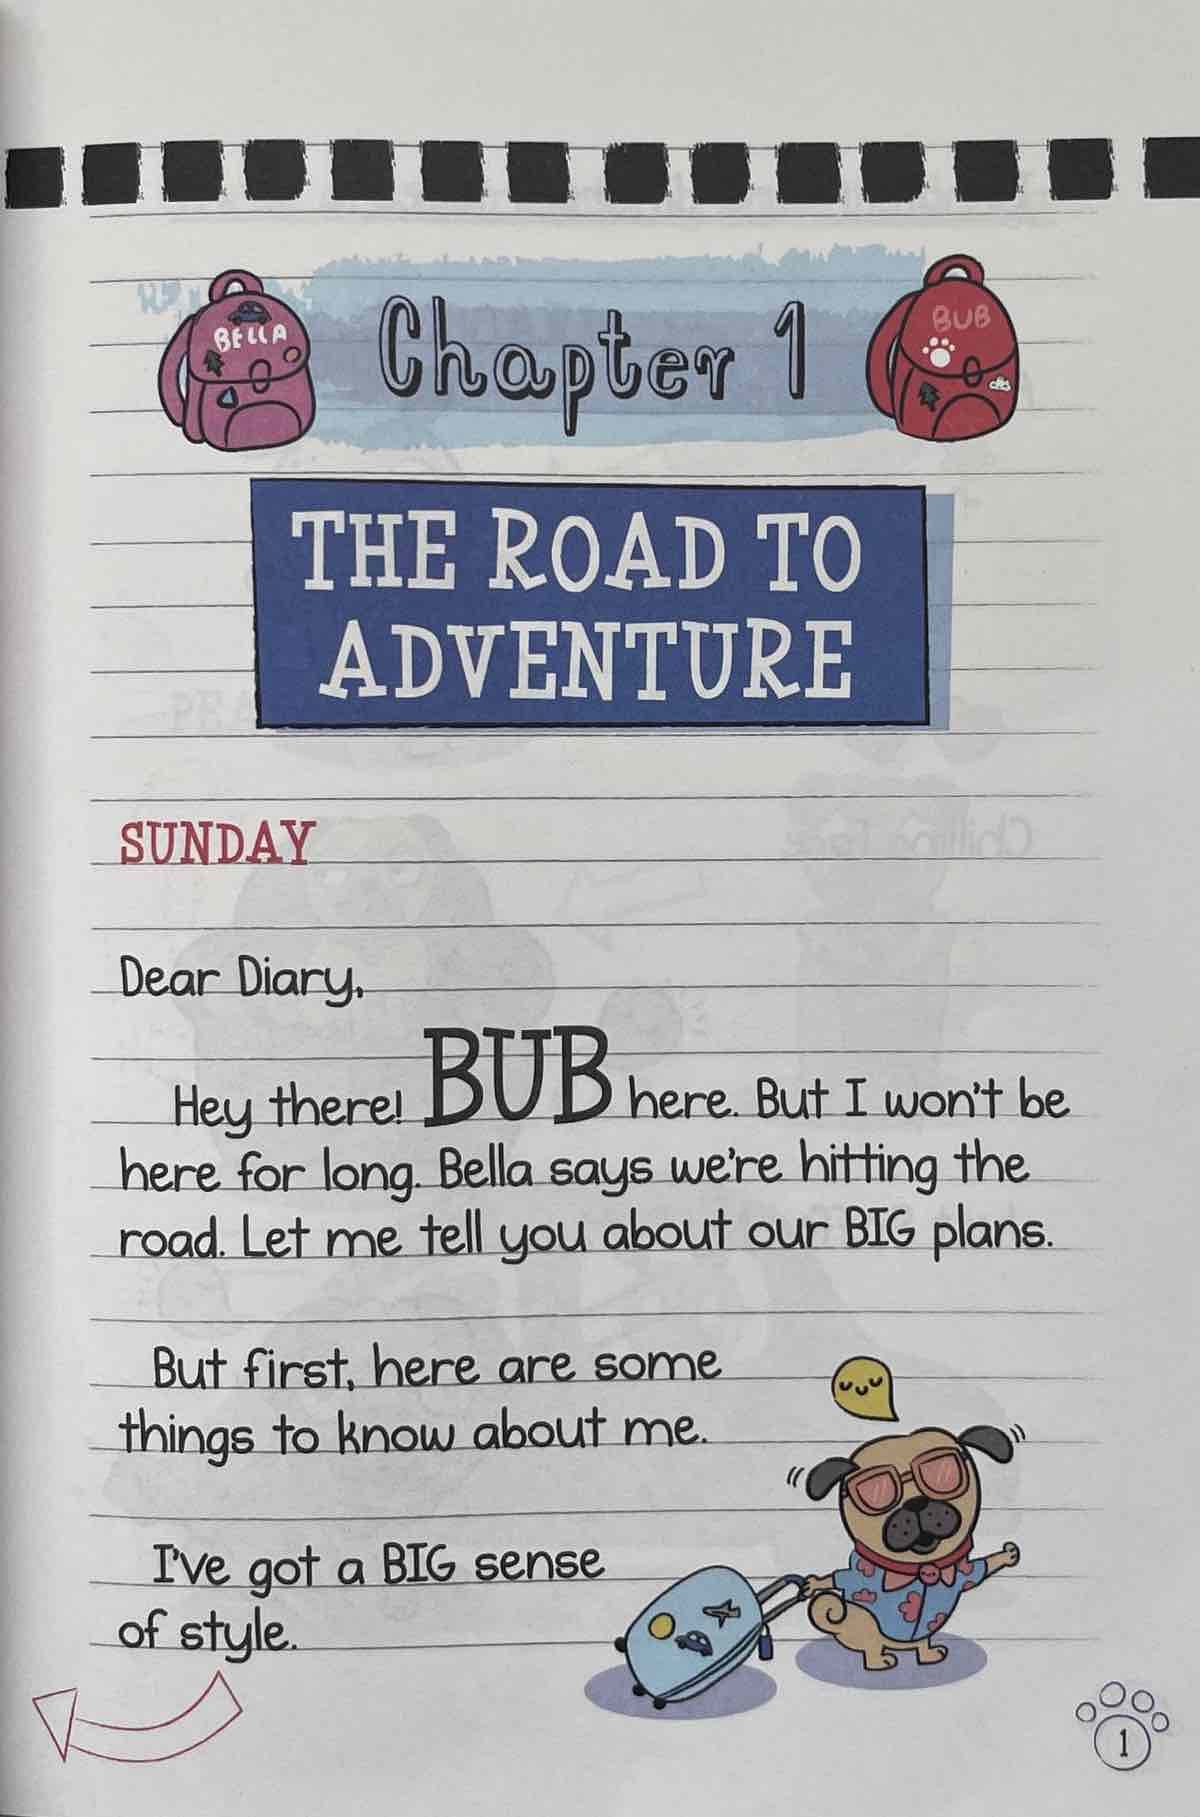 BELLA
Chapter 1
BUB
THE ROAD TO
ADVENTURE
SUNDAY
Dear Diary,
Hey there! BUB here. But I won't be
here for long. Bella says we're hitting the
road. Let me tell you about our BIG plans.
But first, here are some
things to know about me.
I've got a BIG sense
of style.
1